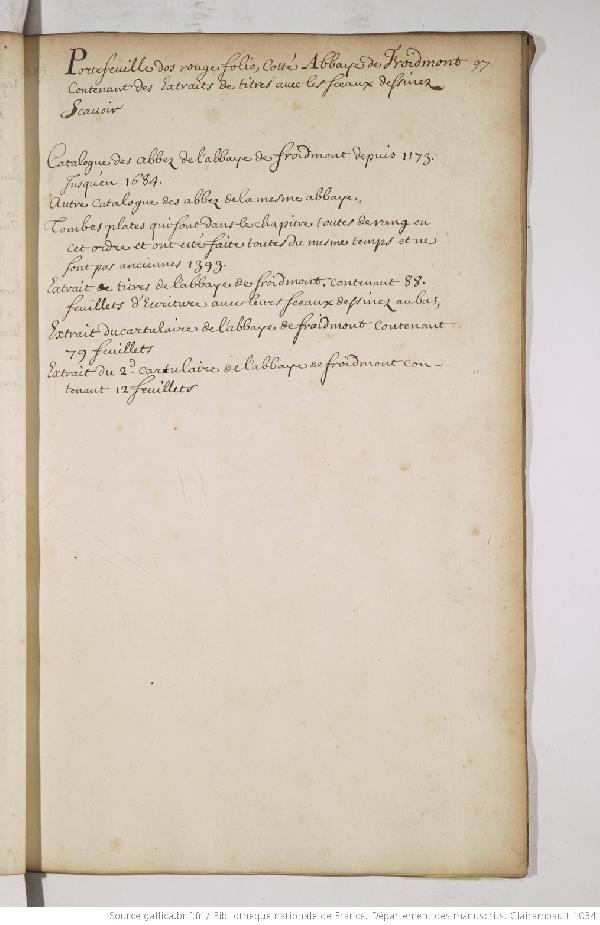 Portefeuille dos rouge folio, Cotté Abbaye de Froidmont 97
Contenant des Extraits de titres avec les sceaux dessinez
Scavoir
Catalogue des abbez de l'abbaye de froidmont depuis 1173.
Jusqu'en 1684.
Autre catalogue des abbez de la mesme abbaye,
Tombes plates qui sont dans le chapitre toutes de rang en
cet ordre et ont eté faite toutes du mesme temps et ne
sont pas anciennes 1393.
Extrait de titres de l'abbaye de froidmont, contenant 88.
feuillets d'Ecriture avec leurs sceaux dessinez au bas,
Extrait du cartulaire de l'abbaye de froidmont contenant
79 feuillets
Extrait du 2d. cartulaire de l'abbaye de froidmont con-
tenant 12 feuillets
Source gallica.bnf.fr / Bibliothèque nationale de France. Département des manuscrits. Clairambault 1034